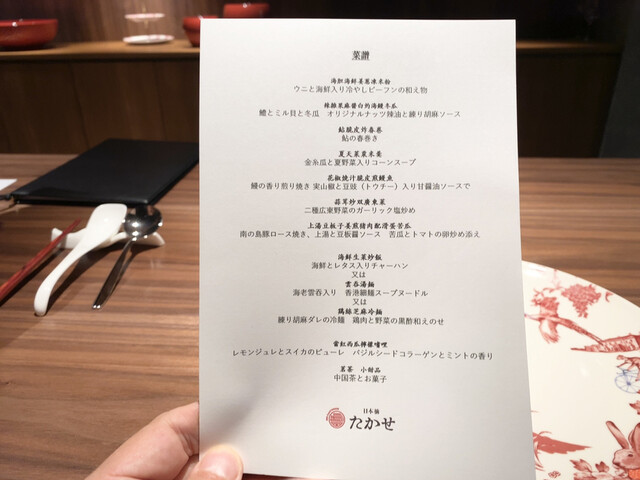 菜譜
海胆海鮮姜葱凍米粉
ウニと海鮮入り冷やしビーフンの和え物
鱧とミル貝と冬瓜　オリジナルナッツ辣油と練り胡麻ソース
鮎脆皮炸春巻
鮎の春巻き
夏天菜粟米羹
金糸瓜と夏野菜入りコーンスープ
花椒焼汁脆皮煎鰻魚
鰻の香り煎り焼き 実山椒と豆豉（トウチー）入り甘醤油ソースで
蒜茸炒双廣東菜
二種広東野菜のガーリック塩炒め
上湯豆板子姜煎猪肉配滑蛋苦瓜
南の島豚ロース焼き、上湯と豆板醤ソース　苦瓜とトマトの卵炒め添え
海鮮生菜炒飯
海鮮とレタス入りチャーハン
又は
雲呑湯麺
海老雲呑入り　香港細麺スープヌードル
又は
鶏絲芝麻冷麺
練り胡麻ダレの冷麺　鶏肉と野菜の黒酢和えのせ
當紅西瓜檸檬啫喱
レモンジュレとスイカのピューレ　バジルシードコラーゲンとミントの香り
茗茶　小甜品
中国茶とお菓子
日本橋
たかせ